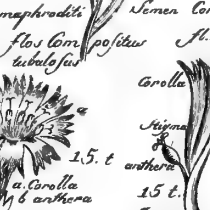 maphroditi
Semen Co
flos Compositus
fl.
tubulosus
Corolla
a
Stigma
1.5. t
anthera
a. Corolla
b anthera
15 t.